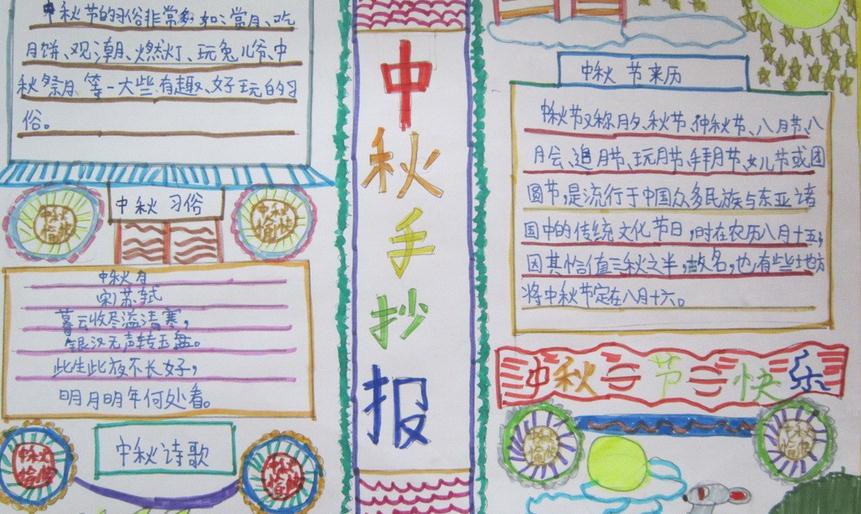 中秋节的习俗非常多如:赏月、吃
月饼、观潮、燃灯、玩兔儿爷、中
秋祭月、等一大些有趣、好玩的习
俗。
中秋习俗
中秋月
宋苏轼
暮云收尽溢清寒,
银汉无声转玉盘。
此生此夜不长好,
明月明年何处看。
中秋诗歌
中秋手抄报
中秋节来历
中秋节又称月夕、秋节、仲秋节、八月节、八
月会、追月节、玩月节、拜月节、女儿节或团
圆节,是流行于中国众多民族与东亚诸
国中的传统文化节日,时在农历八月十五;
因其恰值三秋之半,故名,也有些地方
将中秋节定在八月十六。
中秋节快乐